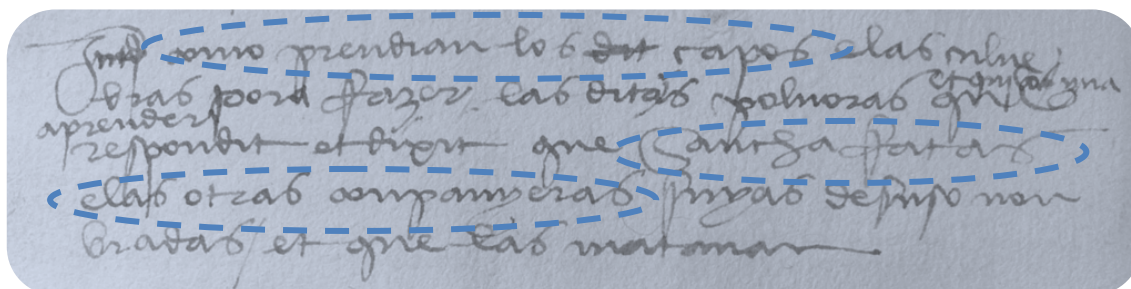 Inte como prendian los dit capos elas culue
bras pora fazer las ditas poluoras et qui las y ua
aprender respondit et dixit que Sancha fatas
elas otras conpanyeras suyas desuso non
bradas et que las matauan